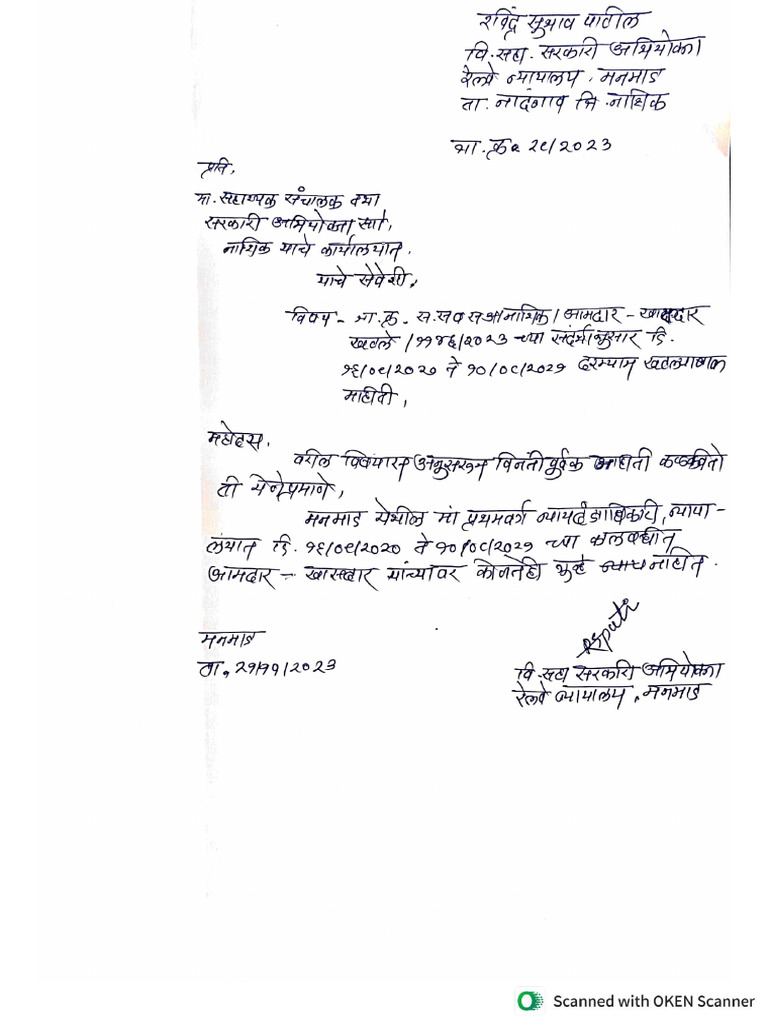 रविंद्र सुभाव पाटील
वि. सहा. सरकारी अभियोक्ता
रेल्वे न्यायालय, मनमाड
ता. नादंगाव जि. नाशिक
जा. क्र. २९/२०२३
प्रति,
मा. सहाय्यक संचालक तथा
सरकारी अभियोक्ता सो,
नाशिक यांचे कार्यालयात,
यांचे सेवेशी,
विषय - जा. क्र. स.सं व स अ/नाशिक/आमदार - खासदार
खटले /११४६/२०२३ च्या संदर्भानुसार दि.
१६/०९/२०२० ते १०/०८/२०२१ दरम्यान खटल्याबाबत
माहीती,
महोदय,
वरील विषयास अनुसरून विनंतीपुर्वक माहीती कळवितो
ती येणेप्रमाणे,
मनमाड येथील मा. प्रथमवर्ग न्यायदंडाधिकारी, न्याया-
लयात दि. १६/०९/२०२० ते १०/०८/२०२१ च्या कालावधीत
आमदार - खासदार यांच्यावर कोणतेही गुन्हे नाहीत.
मनमाड
ता. २१/११/२०२३
वि. सहा सरकारी अभियोक्ता
रेल्वे न्यायालय, मनमाड
Scanned with OKEN Scanner